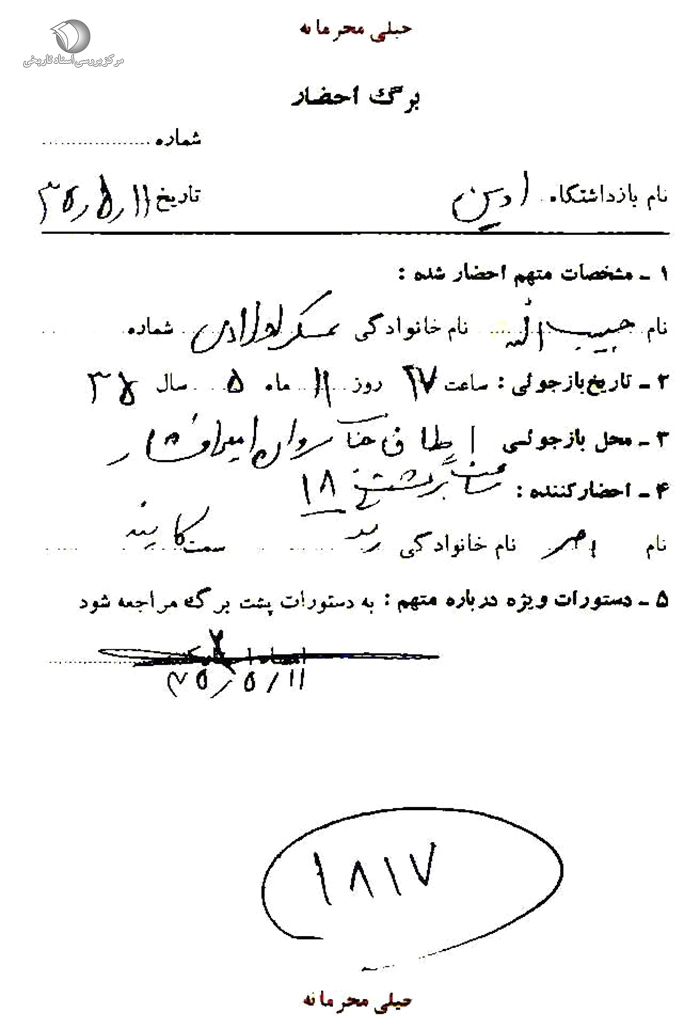 خیلی محرمانه
مرکز بررسی اسناد تاریخی
برگ احضار
شماره
نام بازداشتگاه اوین تاریخ ۳۵٫۵٫۱۱
۱ - مشخصات متهم احضار شده :
نام حبیب الله نام خانوادگی عسکراولادی شماره
۲ - تاریخ بازجوئی : ساعت روز ۱۱ ماه ۵ سال ۳۵
۳ - محل بازجوئی اطاق
۴ - احضار کننده : ساعت برگشت ۱۸
نام نام خانوادگی سمت
۵ - دستورات ویژه درباره متهم : به دستورات پشت برگ مراجعه شود
۳۵/۵/۱۱
۱۸۱۷
خیلی محرمانه